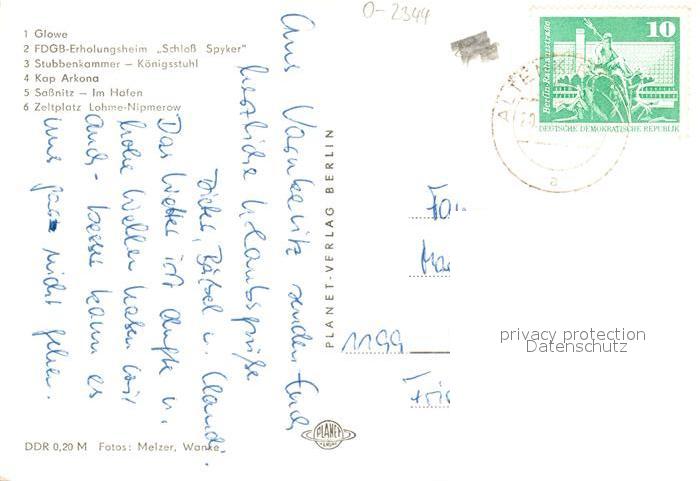 O-2344
1 Glowe
2 FDGB-Erholungsheim „Schloß Spyker"
3 Stubbenkammer – Königsstuhl
4 Kap Arkona
5 Saßnitz – Im Hafen
6 Zeltplatz Lohme-Nipmerow
Aus Vaschvitz senden Euch
herzliche Urlaubsgrüße
Dieter, Bärbel u. Claud.
Das Wetter ist dufte u.
hohe Wellen haben wir
auch - besser kann es
uns gar nicht gehen.
PLANET-VERLAG BERLIN
10
Berlin-Rathausstraße
DEUTSCHE DEMOKRATISCHE REPUBLIK
ALTENK
a
Fa
1199
privacy protection
Datenschutz
DDR 0,20 M Fotos: Melzer, Wanke
PLANET